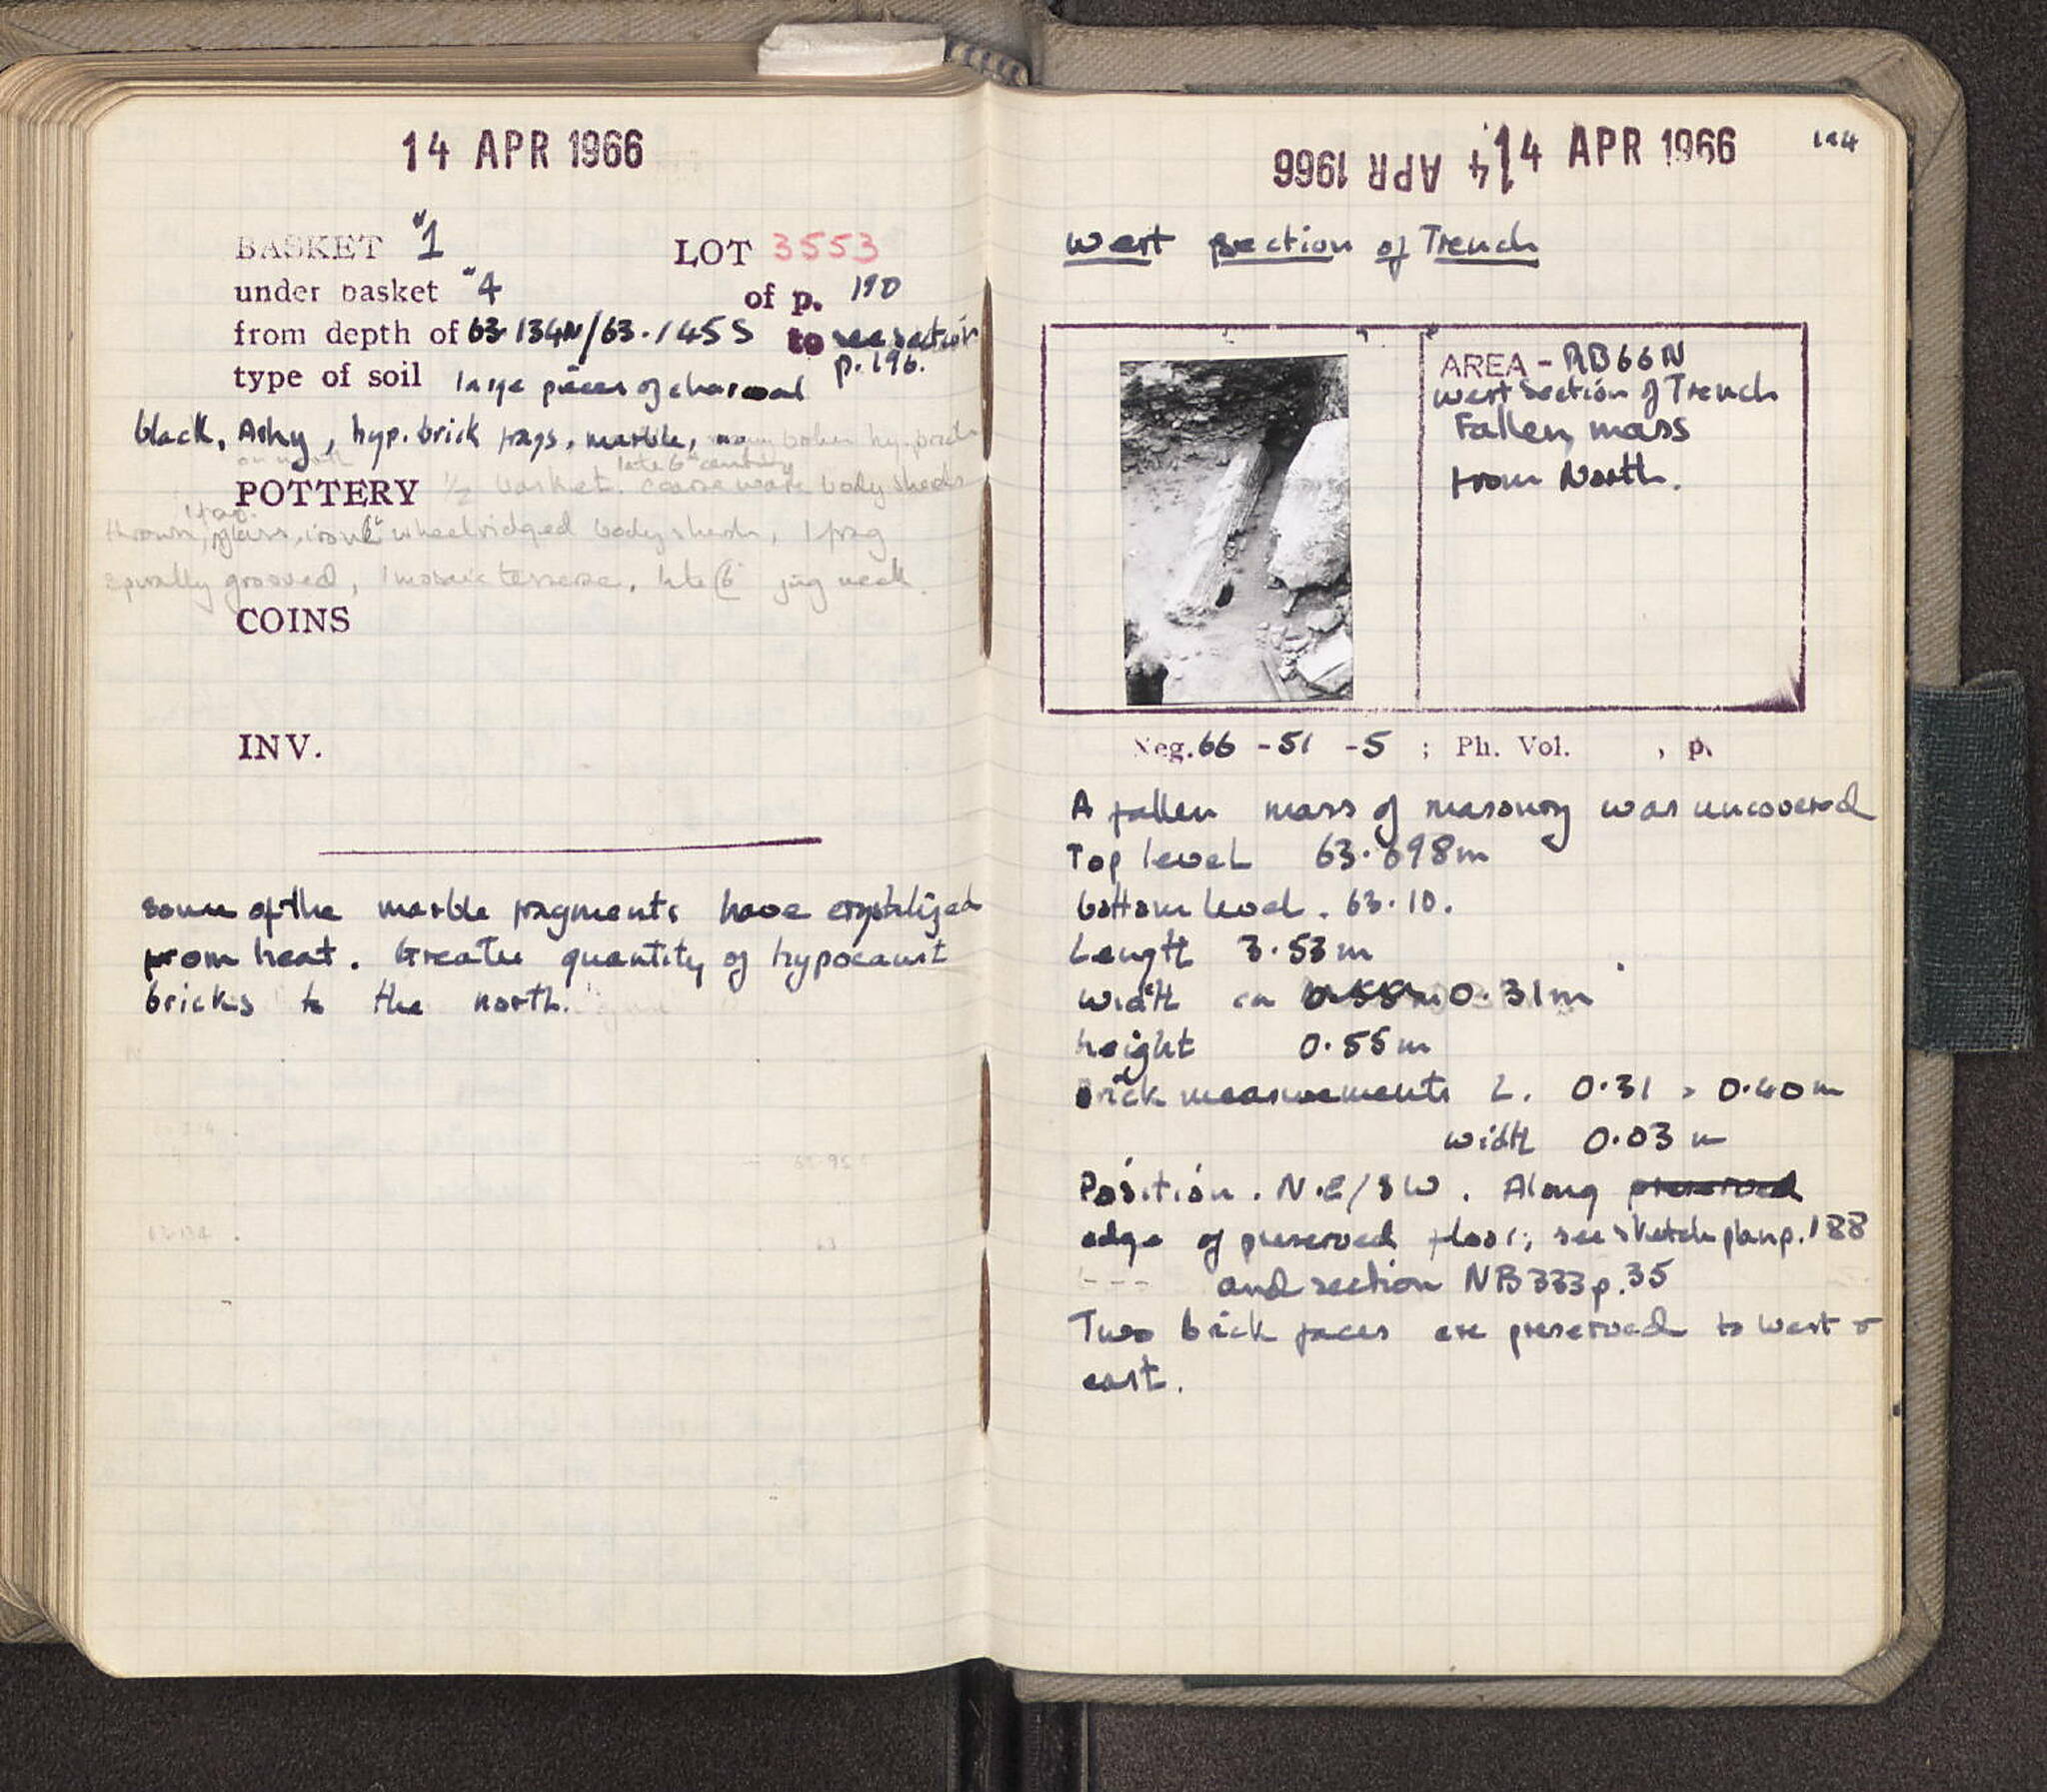 14 APR 1966
BASKET #1 LOT 3553
under basket #4 of p. 190
from depth of 63.134N/63.145S to see section
p. 196.
type of soil large pieces of charcoal
black, Ashy, hyp. brick frags, marble, many broken hyp. brick
on north late 6th century
POTTERY 1/2 basket. coarse ware body sherds
1 frag.
thrown, glass, iron wheelridged body sherds, 1 frag
spirally grooved, 1 mosaic tessera, late C6 jug neck.
COINS
INV.
some of the marble fragments have crystalized
from heat. Greater quantity of hypocaust
bricks to the north.
14 APR 1966 14 APR 1966 194
West Section of Trench
AREA - RB66N
West section of Trench
Fallen mass
from North.
Neg. 66 - 51 - 5 ; Ph. Vol. , p.
A fallen mass of masonry was uncovered
Top level 63.698m
bottom level. 63.10.
Length 3.53m
width ca 0.55m 0.31m
height 0.55m
Brick measurements L. 0.31 > 0.40m
width 0.03m
Position. N.E/SW. Along preserved
edge of preserved floor; see sketch plan p.188
and section NB 333 p.35
Two brick faces are preserved to west &
east.